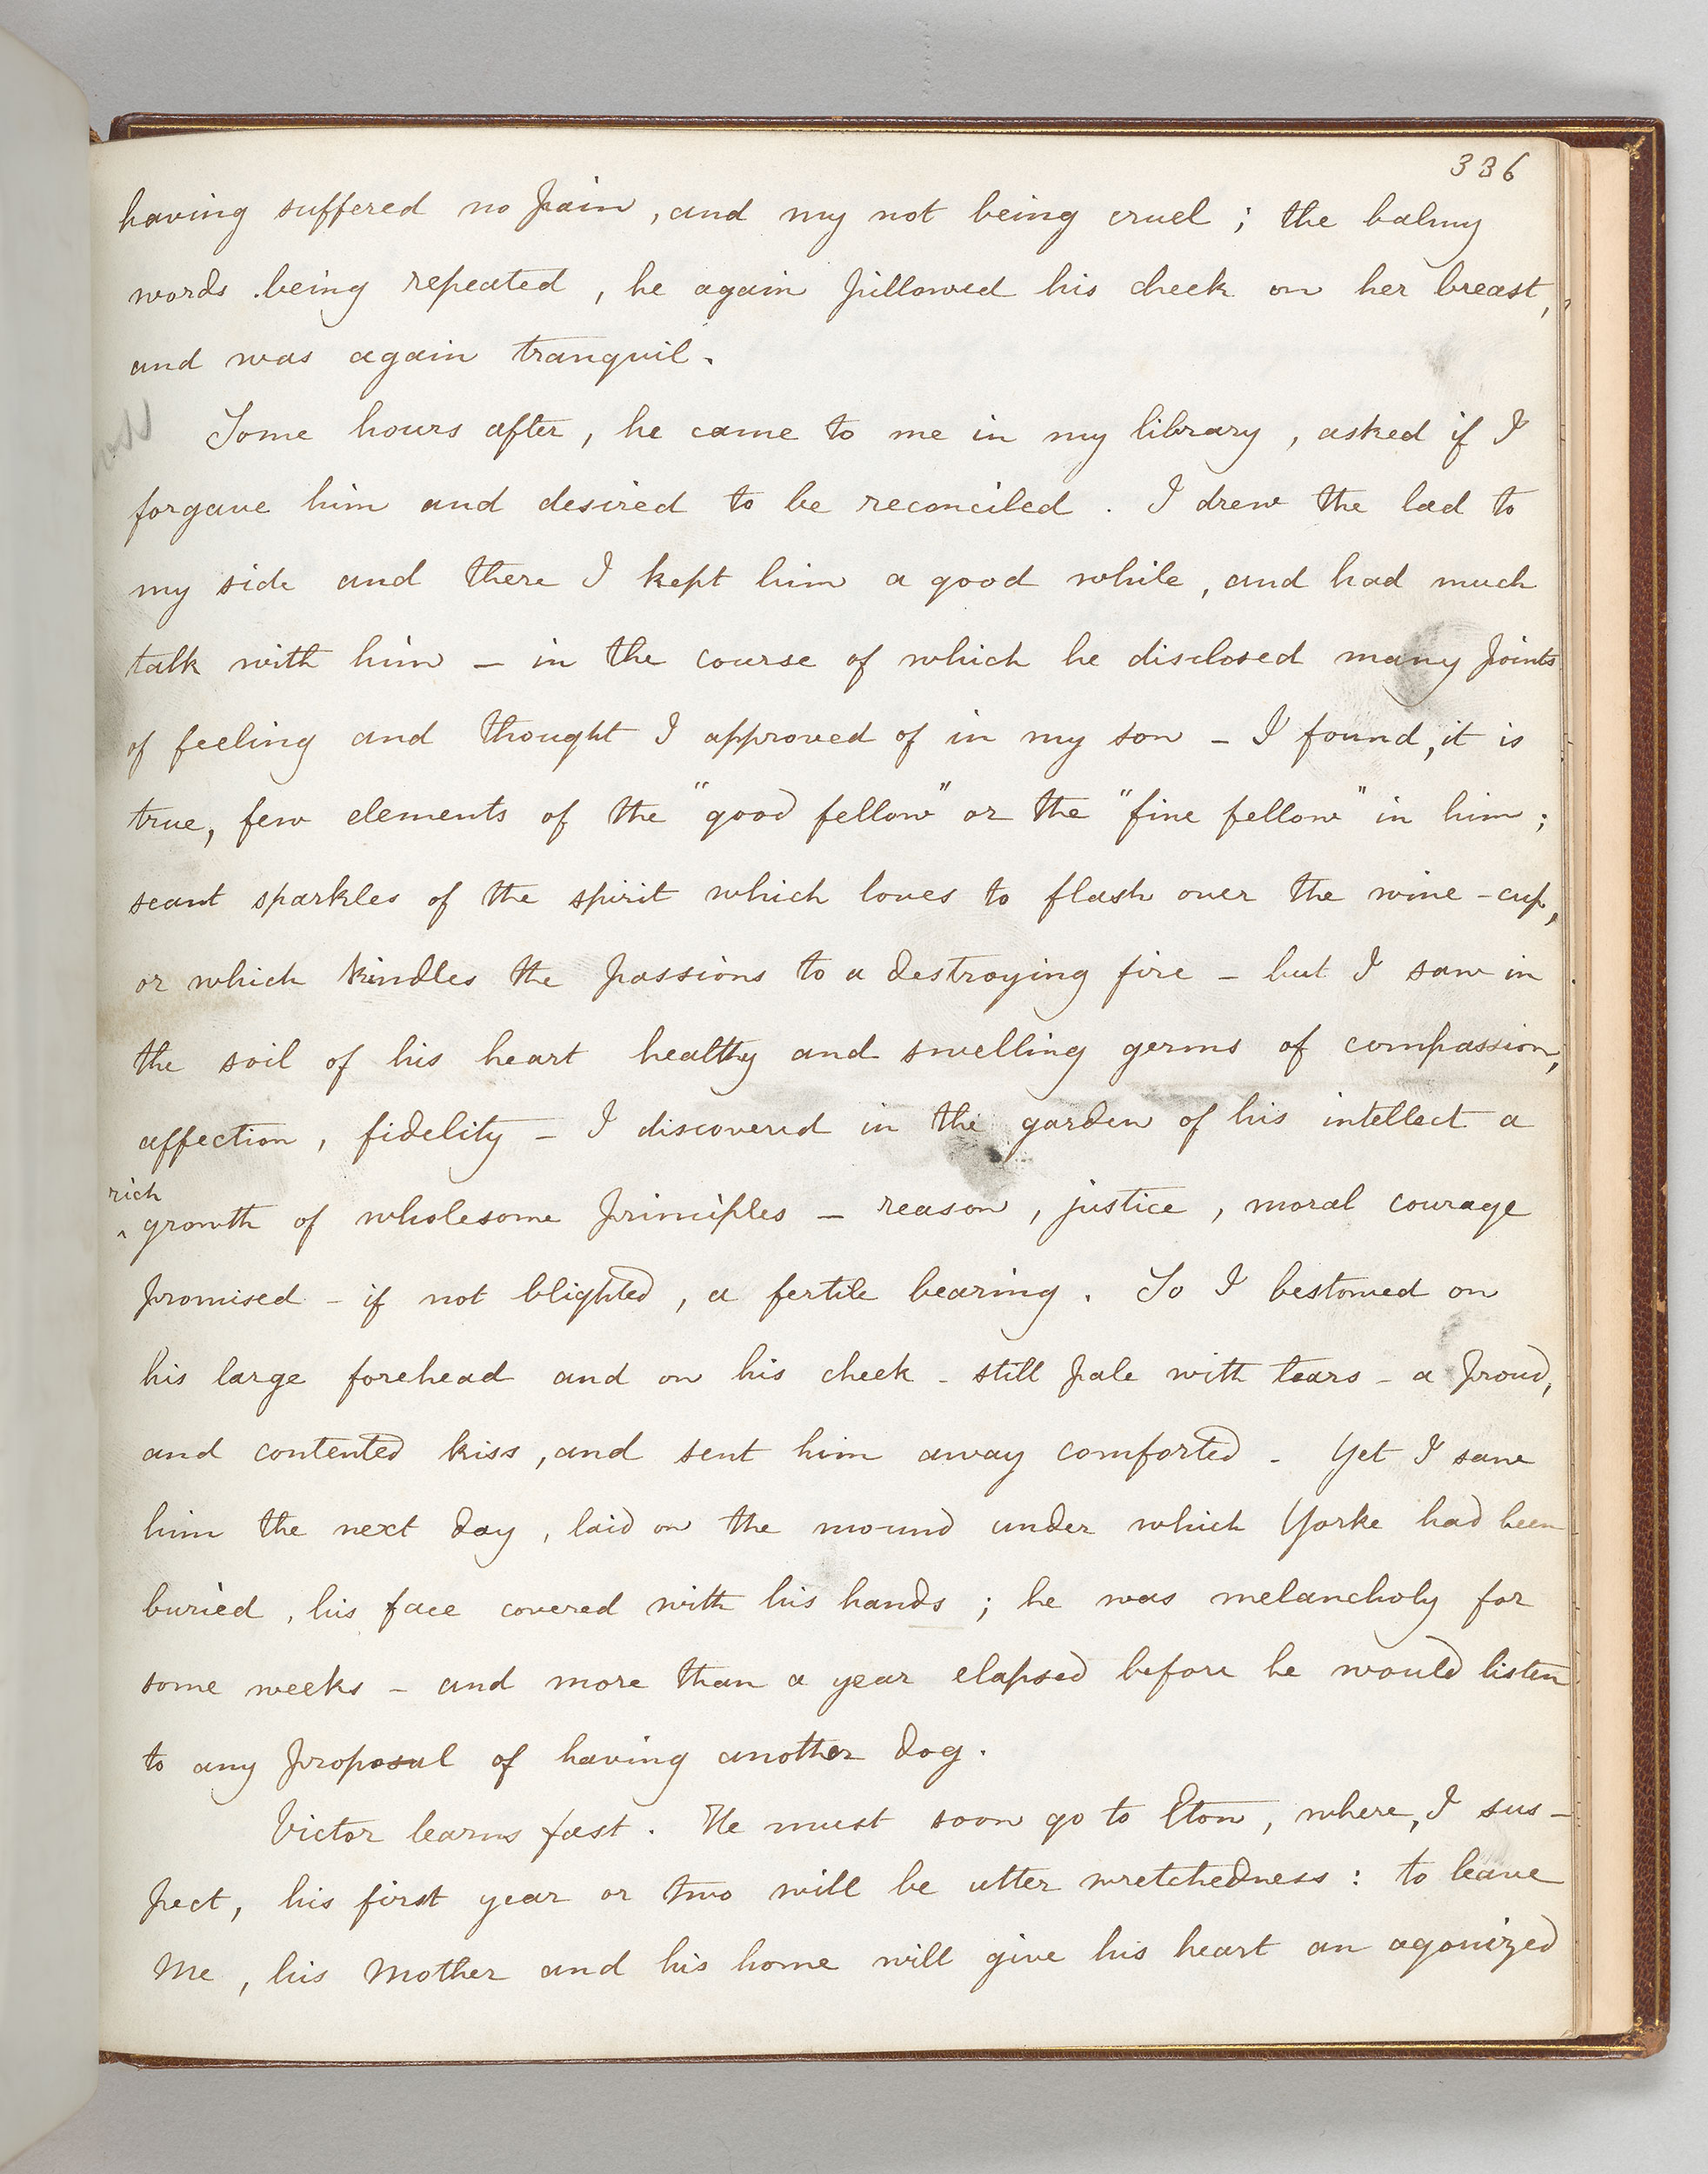 336
having suffered no pain, and my not being cruel; the balmy
words being repeated, he again pillowed his cheek on her breast,
and was again tranquil.
Some hours after, he came to me in my library, asked if I
forgave him and desired to be reconciled. I drew the lad to
my side and there I kept him a good while, and had much
talk with him — in the course of which he disclosed many points
of feeling and thought I approved of in my son — I found, it is
true, few elements of the "good fellow" or the "fine fellow" in him;
scant sparkles of the spirit which loves to flash over the wine-cup,
or which kindles the passions to a destroying fire — but I saw in
the soil of his heart healthy and swelling germs of compassion,
affection, fidelity — I discovered in the garden of his intellect a
rich
^ growth of wholesome principles — reason, justice, moral courage
promised — if not blighted, a fertile bearing. So I bestowed on
his large forehead and on his cheek — still pale with tears — a proud,
and contented kiss, and sent him away comforted — Yet I saw
him the next day, laid on the mound under which Yorke had been
buried, his face covered with his hands; he was melancholy for
some weeks — and more than a year elapsed before he would listen
to any proposal of having another dog.
Victor learns fast. He must soon go to Eton, where, I sus-
pect, his first year or two will be utter wretchedness: to leave
me, his mother and his home will give his heart an agonized